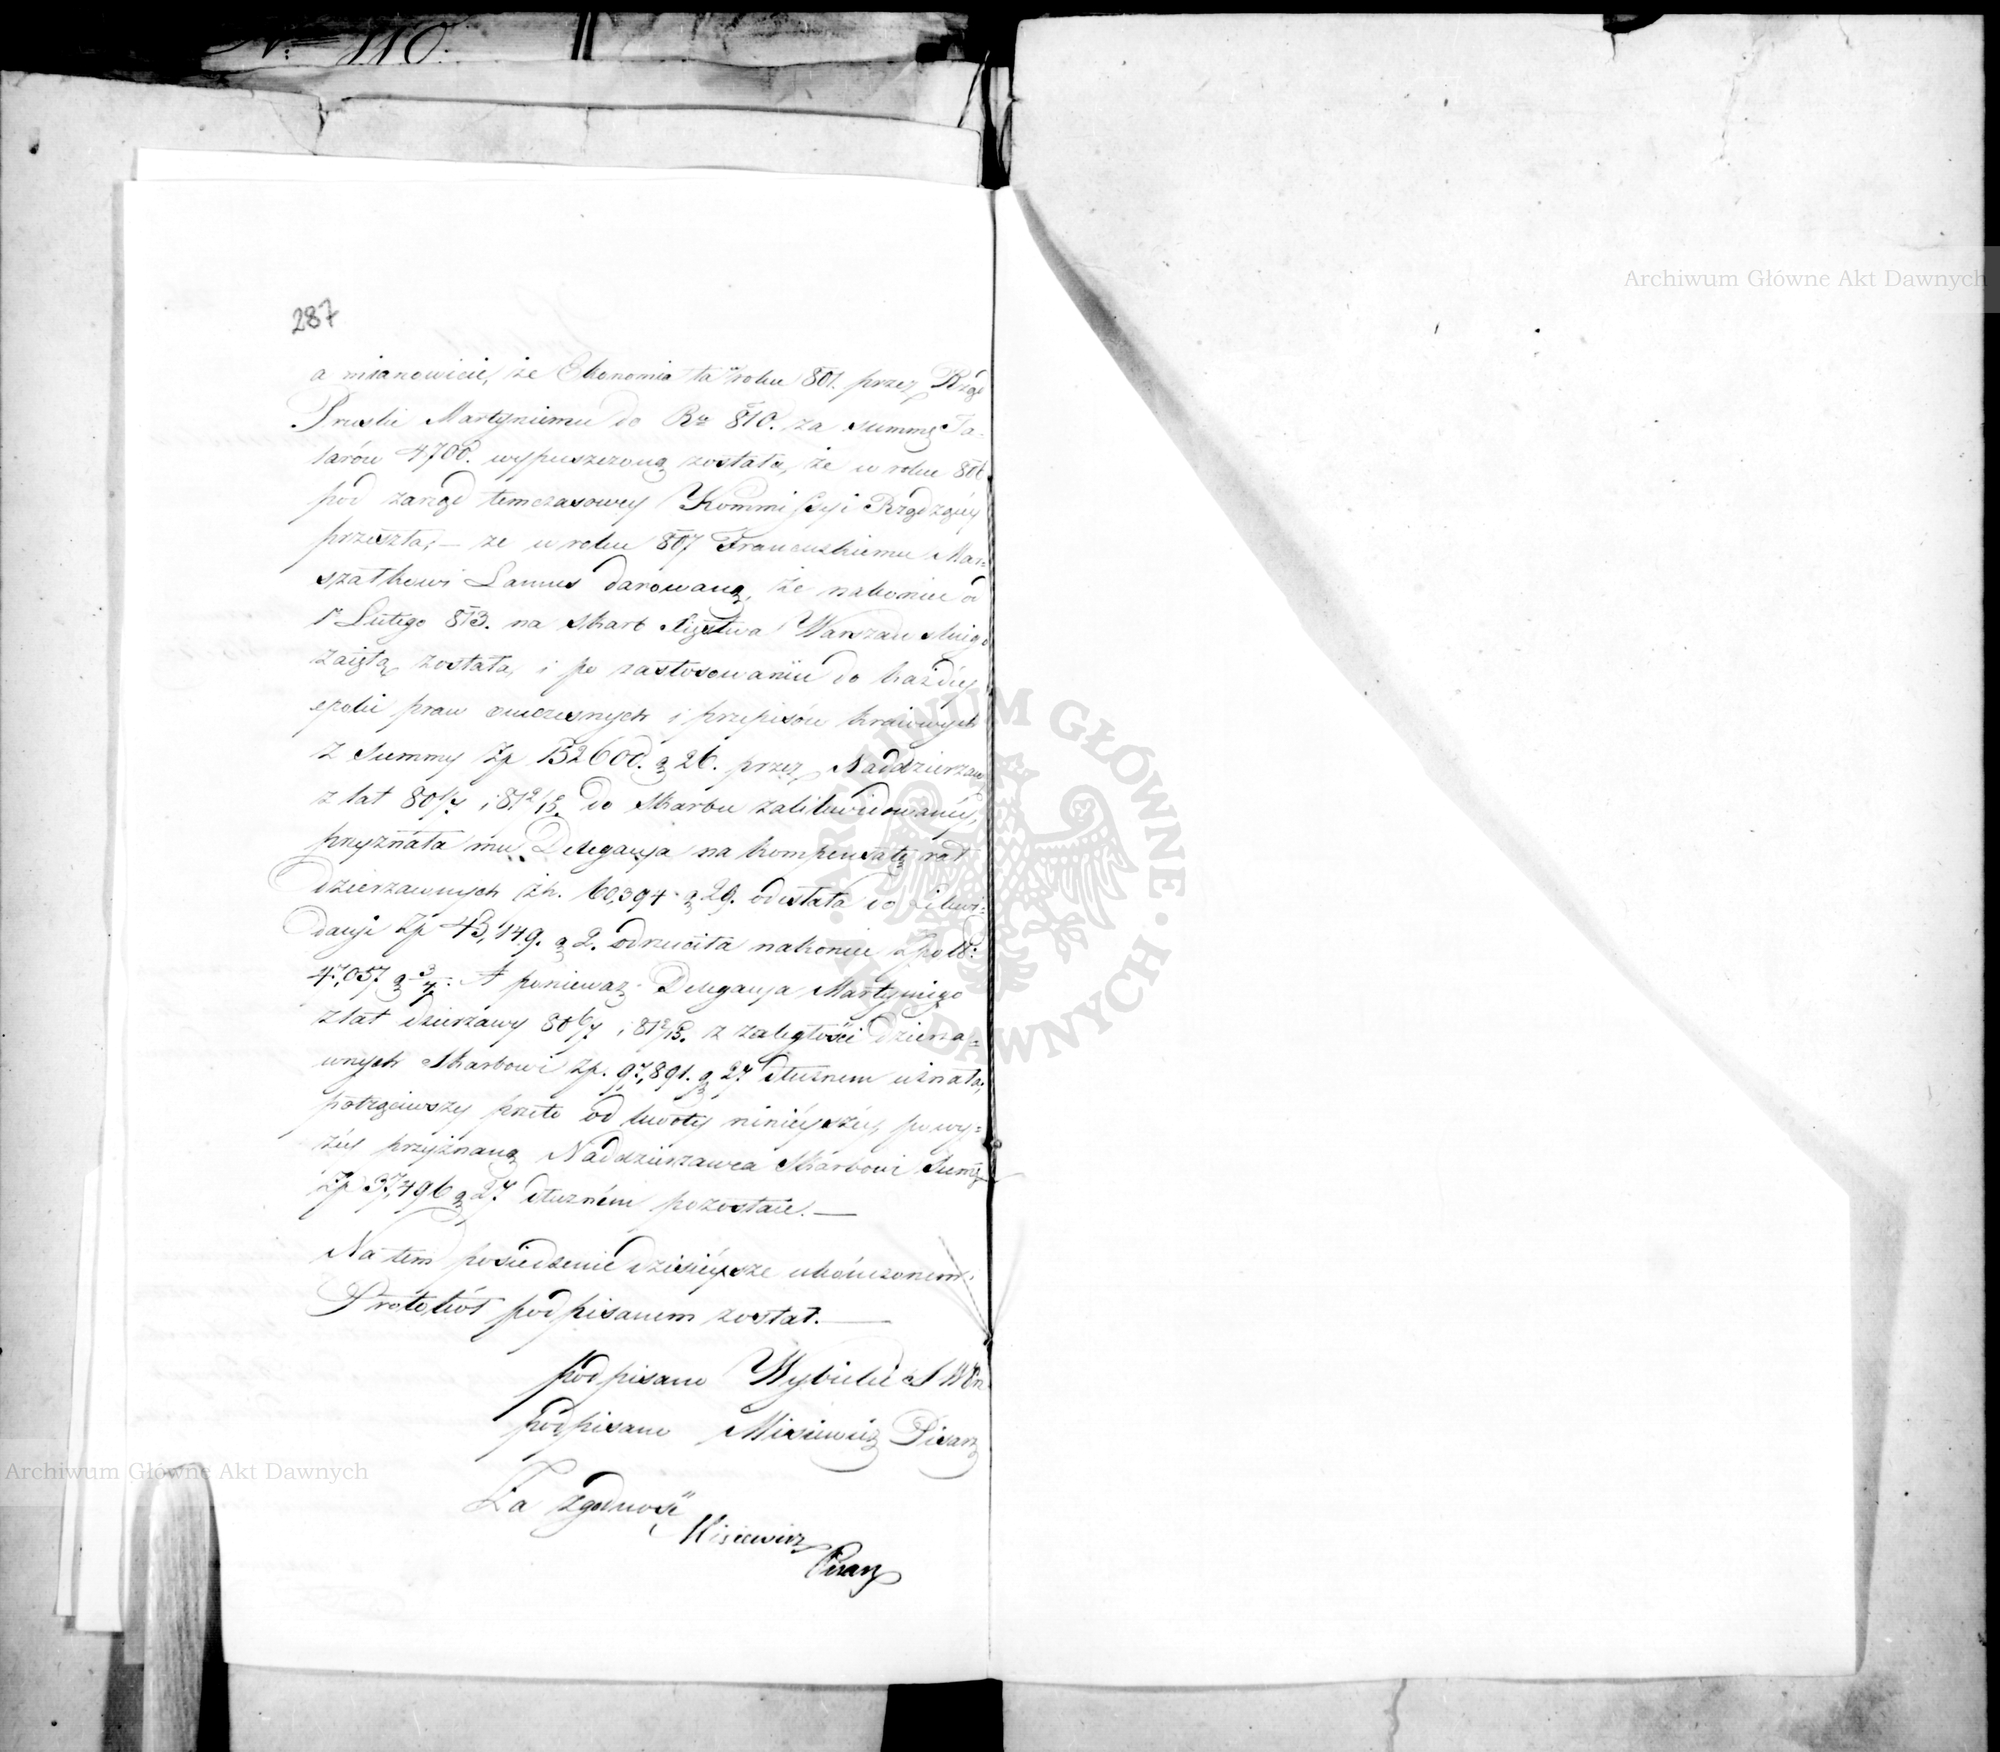 No 110.
287
a mianowicie, że Ekonomia ta roku 801. przez Rząd
Pruski Martyniemu do Ru 810. za summę Ta-
larów 4700. wypuszczoną została, że w roku 806
pod zarząd temczasowey Kommissyi Rządzącey
przeszła, — że w roku 807 Francuskiemu Mar-
szałkowi Lannes darowaną, że nakoniec d
1o Lutego 813. na skarb Xięstwa Warszawskiego
zaiętą została, i po zastosowaniu do każdéy
epoki praw owczesnych i przepisów kraiowych
z Summy Zp 152600. g 26. przez Naddzierzaw
z lat 806/7 i 812/13. do Skarbu zalikwidowanéy,
przyznała mu Delegacya na kompensatę rat
dzierzawnych zp. 60,394 g 29. odesłała do Likwi-
dacyi Zp 45,149. g 2. odrzuciła nakoniec Zpol:
47,057 g 3/4. A ponieważ Delegacya Martyniego
z lat dzierżawy 806/7 i 812/13. z zaległości dzierża-
wnych Skarbowi zp. 97,891. g 27 dłużnem uznała,
potrąciwszy przeto od kwoty ninieyszéy, powy-
żéy przyznaną Naddzierzawca Skarbowi Summę
Zp 37,496 g 27 dłużném pozostaie. —
Na tem posiedzenie dzisiéysze ukończonem
Protokół podpisanem został. —
podpisano Wybicki
podpisano Misiewicz Pisarz
Za zgodność
Misiewicz
Pisarz
Archiwum Główne Akt Dawnych
Archiwum Główne Akt Dawnych
ARCHIWUM GŁÓWNE AKT DAWNYCH